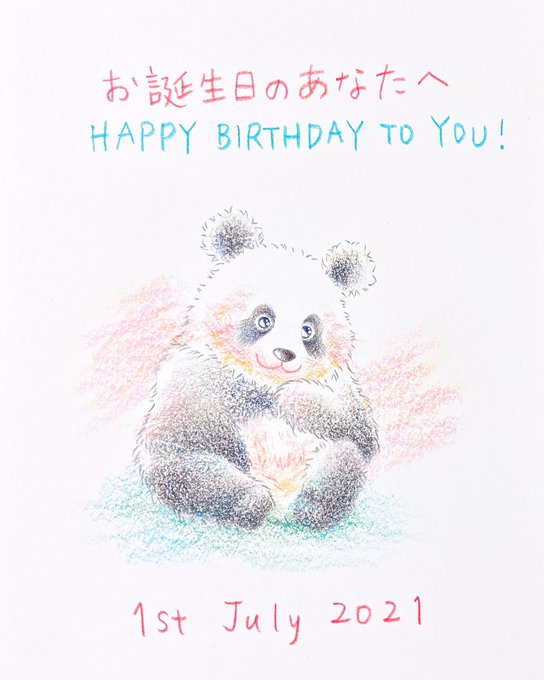 お誕生日のあなたへ
HAPPY BIRTHDAY TO YOU!
1st July 2021